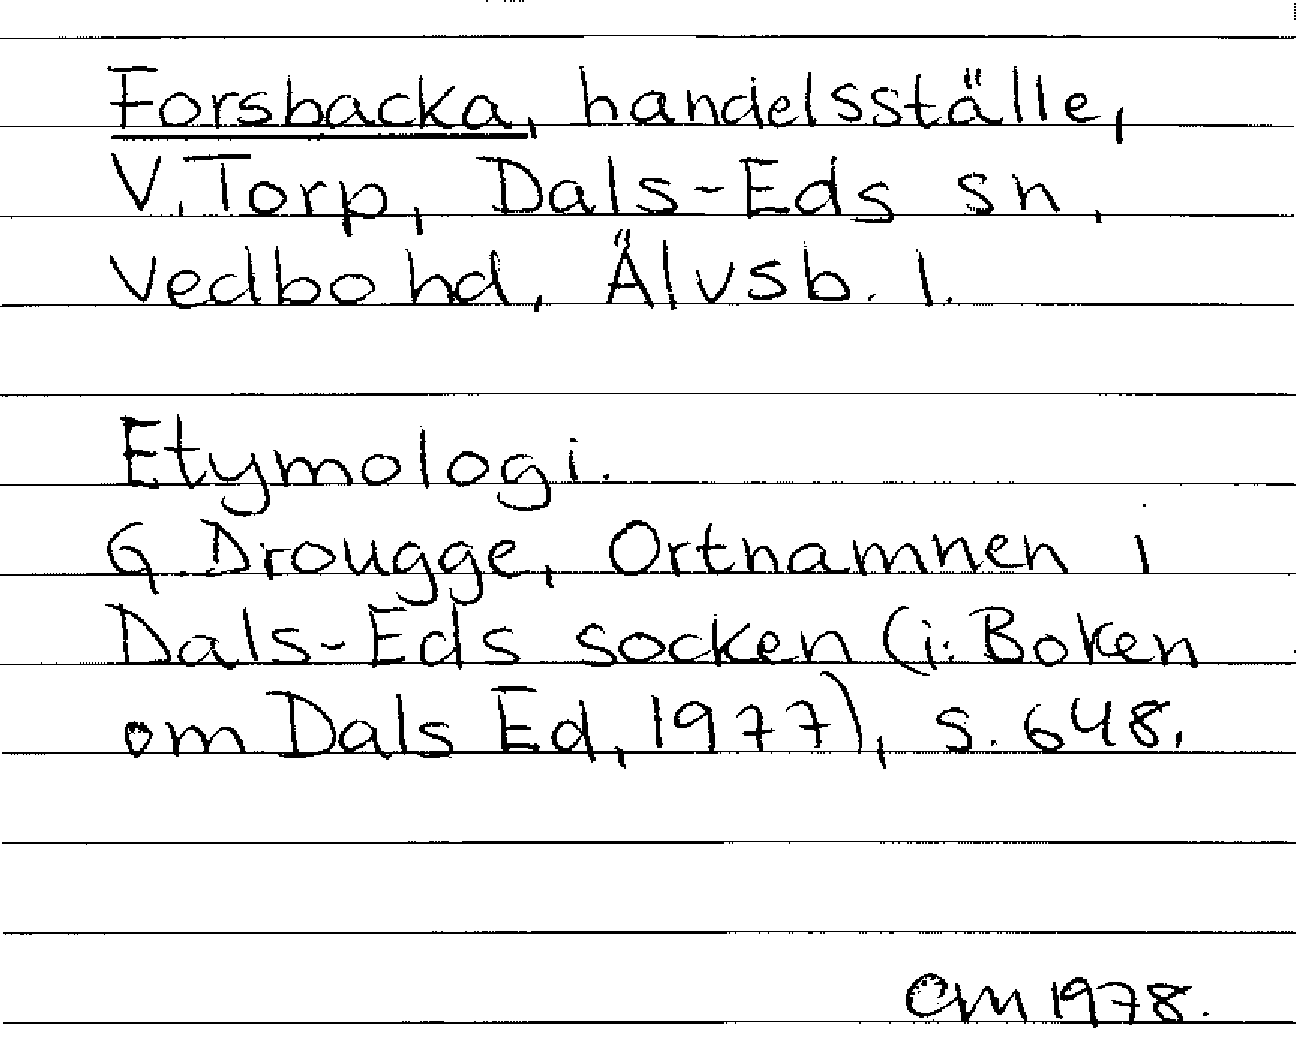 Forsbacka, handelsställe,
V. Torp, Dals-Eds sn,
Vedbo hd, Älvsb. l.
Etymologi.
G Drougge, Ortnamnen i
Dals-Eds socken (i: Boken
om Dals Ed, 1977), s. 648.
CM 1978.